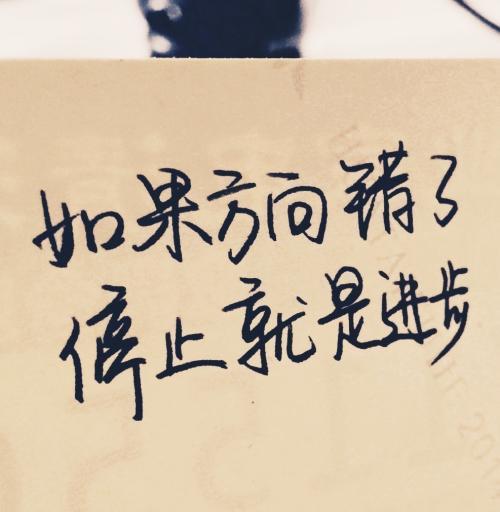 如果方向错了
停止就是进步